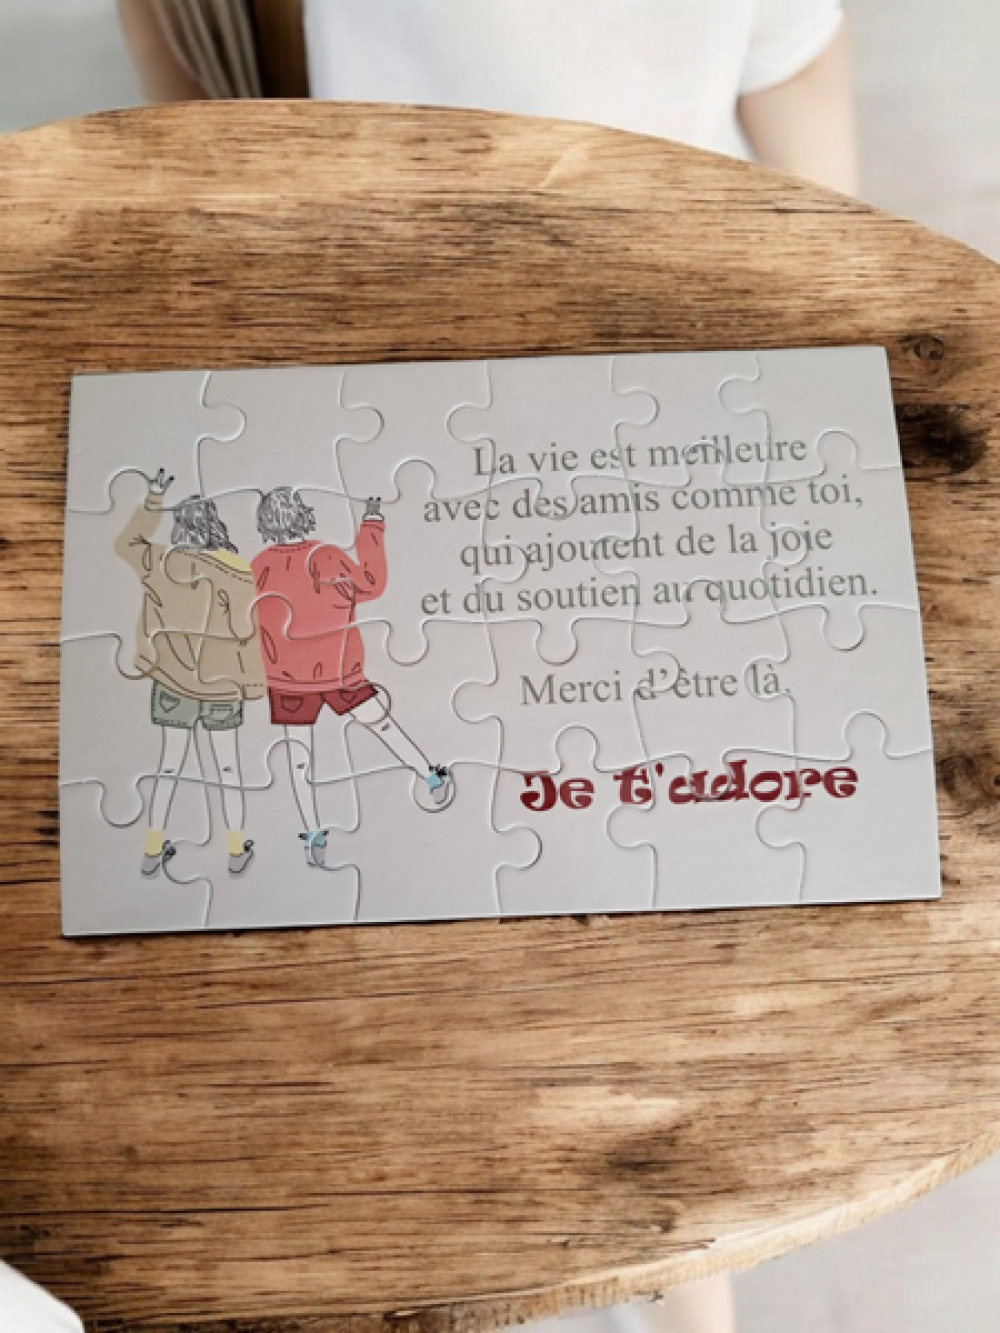 La vie est meilleure
avec des amis comme toi,
qui ajoutent de la joie
et du soutien au quotidien.
Merci d'être là.
Je t'adore